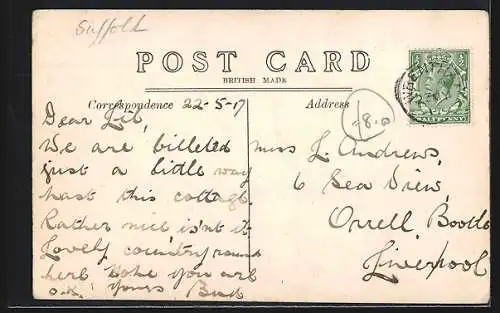 Suffolk
POST CARD
BRITISH MADE
Correspondence 22-5-17
Address
£8.0
HALFPENNY
Dear Lil,
We are billeted
just a little way
past this cottage.
Rather nice isn't it
Lovely country round
here Hope you are
o.k. Yours Bud
Miss L. Andrews,
6 Sea View,
Orrell, Bootle
Liverpool